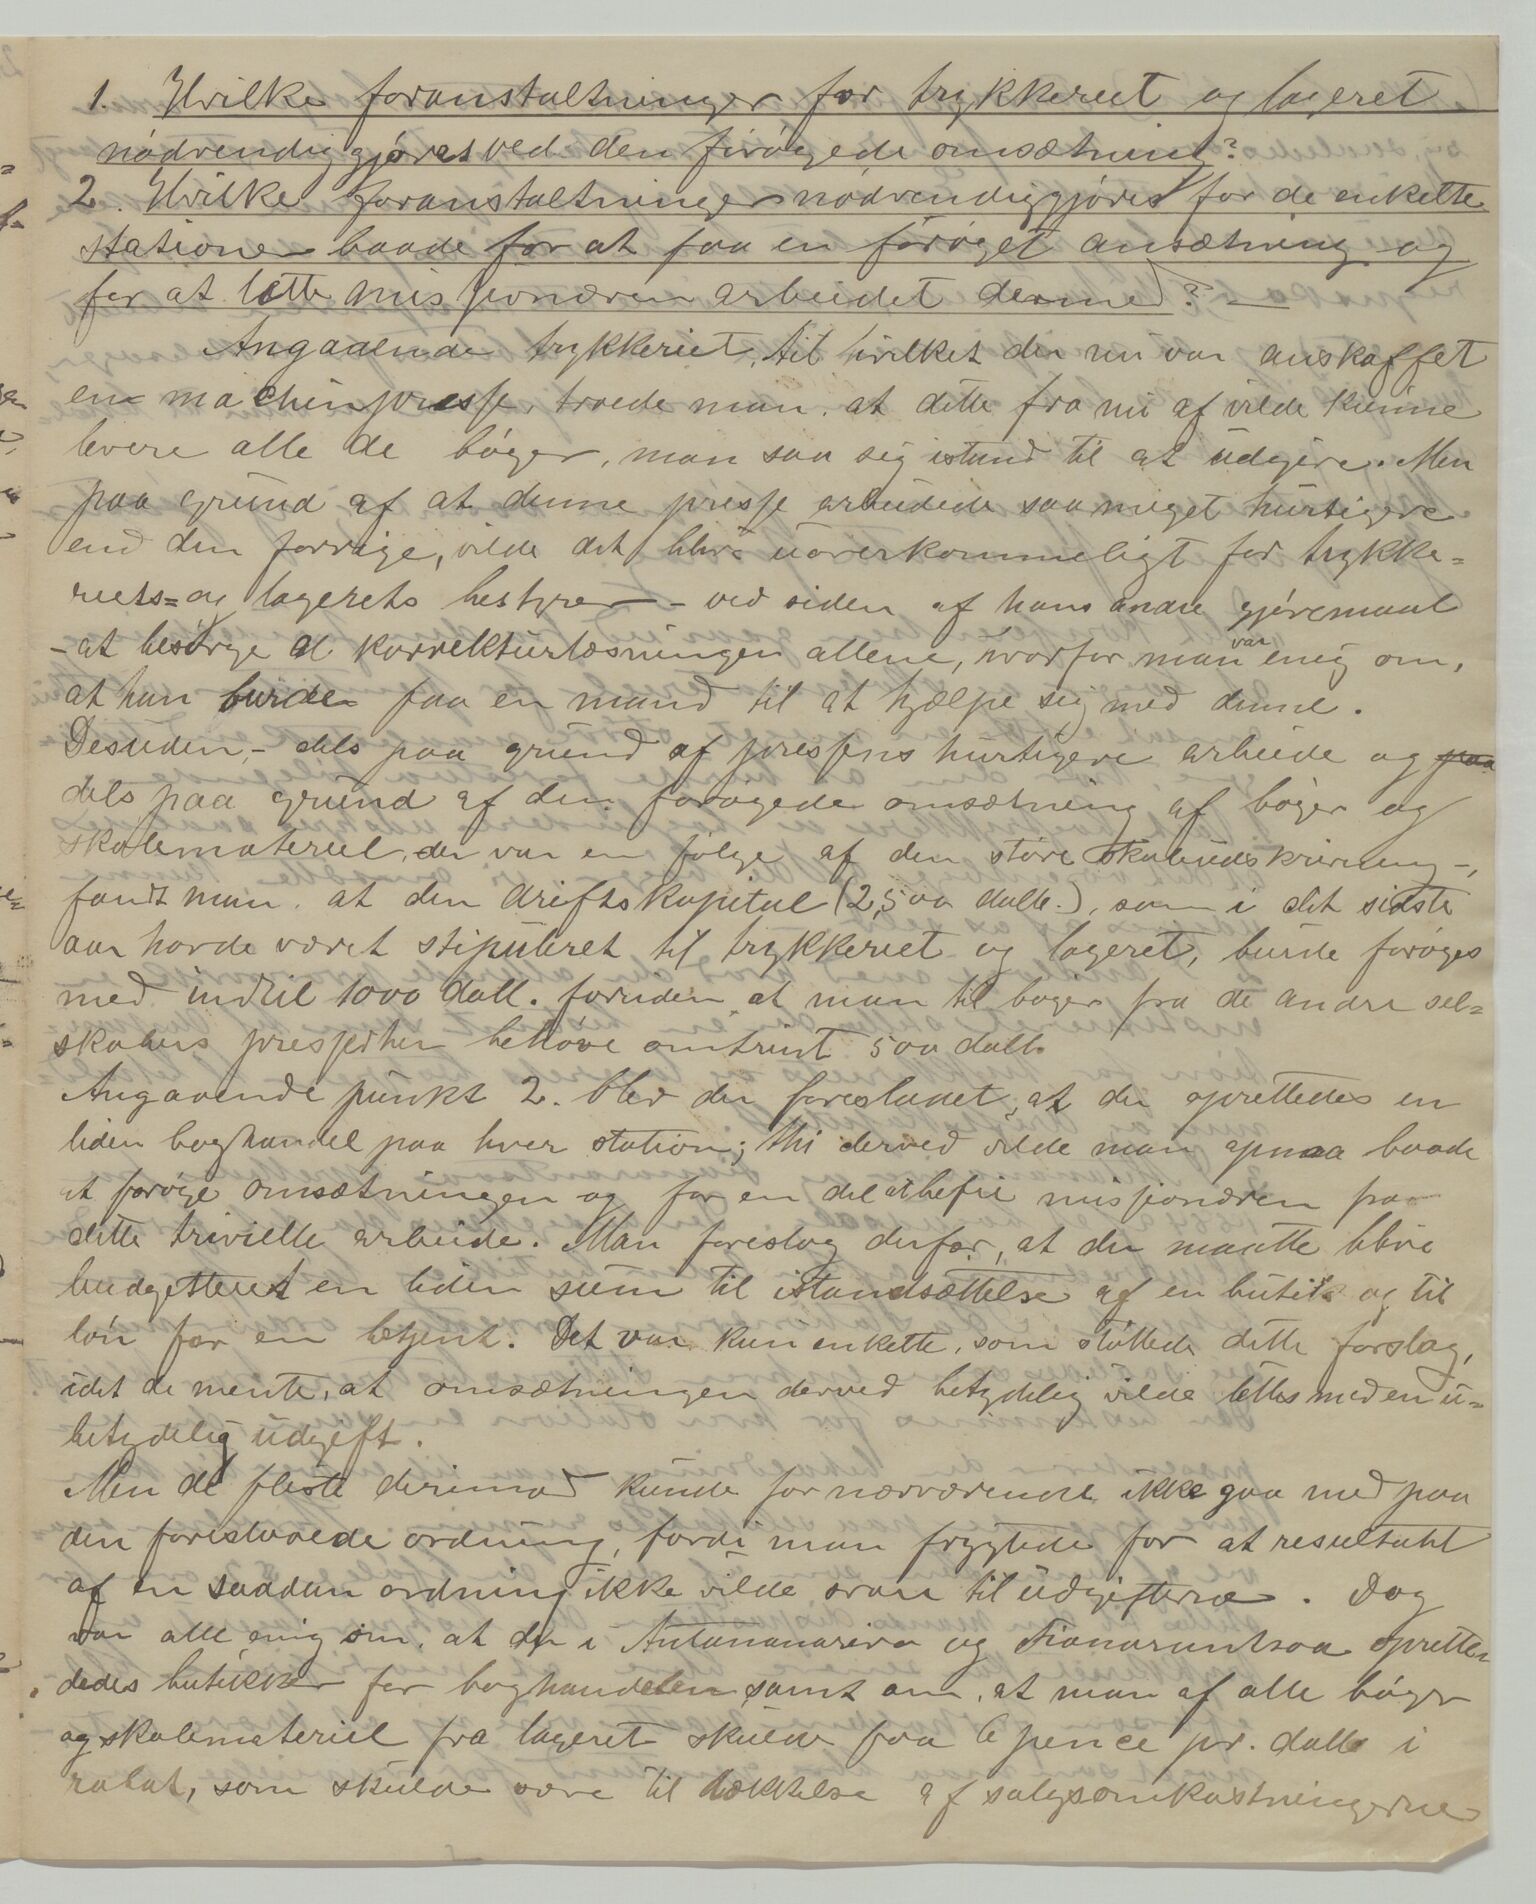 1. Hvilke foranstaltninger for trykkeriet og lageret
nødvendiggjøres ved den forøgede omsætning?
2. Hvilke foranstaltninger nødvendiggjøres for de enkelte
stationer baade for at faa en forøget omsætning og
for at lette missionæren arbeidet dermed? —
Angaaende trykkeriet, til hvilket der nu var anskaffet
en machinpresse, troede man, at dette fra nu af vilde kunne
levere alle de bøger, man saa sig istand til at udgive. Men
paa grund af at denne presse arbeidede saa meget hurtigere
end den forrige, vilde det blive uoverkommeligt for trykke=
riets= og lagerets bestyrer – ved siden af hans andre gjøremaal
– at besørge al korrekturlæsningen allene, hvorfor man var enig om,
at han burde faa en mand til at hjælpe sig med denne.
Desuden, – dels paa grund af pressens hurtigere arbeide og paa
dels paa grund af den forøgede omsætning af bøger og
skolemateriel, der var en følge af den større skoleudskrivning –,
fandt man, at den driftskapital (2,500 doll.), som i det sidste
aar havde været stipuleret til trykkeriet og lageret, burde forøges
med indtil 1000 doll. foruden at man til bøger fra de andre sel=
skabers presser behøve omtrent 500 doll.
Angaaende punkt 2. blev der foreslaaet, at der oprettedes en
liden boghandel paa hver station; thi derved vilde man opnaa baade
at forøge omsætningen og for en del at befri missionæren fra
dette trivielle arbeide. Man foreslog derfor, at der maatte blive
budgetteret en liden sum til istandsættelse af en butik og til
løn for en betjent. Det var kun enkelte, som støttede dette forslag,
idet de mente, at omsætningen derved betydelig vilde lettes med en u=
betydelig udgift.
Men de fleste derimod kunde for nærværende ikke gaa med paa
den foreslaaede ordning, fordi man frygtede for at resultatet
af en saadan ordning ikke vilde svare til udgifterne. Dog
var alle enig om, at der i Antananarivo og Fianarantsoa opretten
dedes butikker for boghandelen, samt om, at man af alle bøger
og skolemateriel fra lageret skulde faa 6 pence pr. doll. i
rabat, som skulde være til dækkelse af salgsomkostningerne